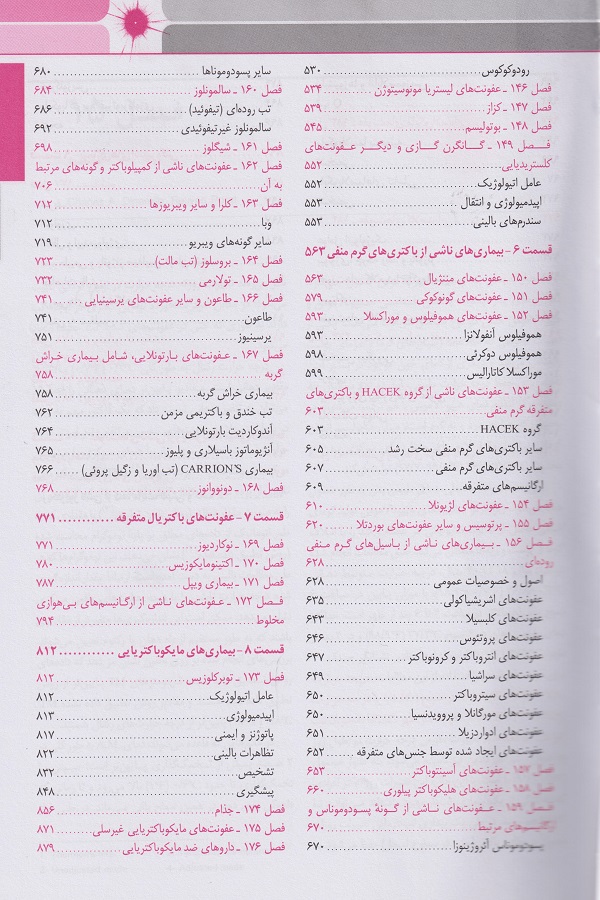 رودوکوکوس ۵۳۰
فصل ۱۴۶ ـ عفونت‌های لیستریا مونوسیتوژن ۵۳۴
فصل ۱۴۷ ـ کزاز ۵۳۹
فصل ۱۴۸ ـ بوتولیسم ۵۴۵
فصل ۱۴۹ ـ گانگرن گازی و دیگر عفونت‌های
کلستریدیایی ۵۵۲
عامل اتیولوژیک ۵۵۲
اپیدمیولوژی و انتقال ۵۵۳
سندرم‌های بالینی ۵۵۳
قسمت ۶ – بیماری‌های ناشی از باکتری‌های گرم منفی ۵۶۳
فصل ۱۵۰ ـ عفونت‌های مننژیال ۵۶۳
فصل ۱۵۱ ـ عفونت‌های گونوکوکی ۵۷۹
فصل ۱۵۲ ـ عفونت‌های هموفیلوس و موراکسلا ۵۹۳
هموفیلوس آنفولانزا ۵۹۳
هموفیلوس دوکرئی ۵۹۸
موراکسلا کاتارالیس ۵۹۹
فصل ۱۵۳ ـ عفونت‌های ناشی از گروه HACEK و باکتری‌های
متفرقه گرم منفی ۶۰۳
گروه HACEK ۶۰۳
سایر باکتری‌های گرم منفی سخت رشد ۶۰۵
سایر باکتری‌های گرم منفی ۶۰۷
ارگانیسم‌های متفرقه ۶۰۹
فصل ۱۵۴ ـ عفونت‌های لژیونلا ۶۱۰
فصل ۱۵۵ ـ پرتوسیس و سایر عفونت‌های بوردتلا ۶۲۰
فصل ۱۵۶ ـ بیماری‌های ناشی از باسیل‌های گرم منفی
روده‌ای ۶۲۸
اصول و خصوصیات عمومی ۶۲۸
عفونت‌های اشریشیاکولی ۶۳۵
عفونت‌های کلبسیلا ۶۴۳
عفونت‌های پروتئوس ۶۴۶
عفونت‌های انتروباکتر و کرونوباکتر ۶۴۷
عفونت‌های سراشیا ۶۴۹
عفونت‌های سیتروباکتر ۶۵۰
عفونت‌های مورگانلا و پروویدنسیا ۶۵۰
عفونت‌های ادواردزیلا ۶۵۱
عفونت‌های ایجاد شده توسط جنس‌های متفرقه ۶۵۲
فصل ۱۵۷ ـ عفونت‌های آسینتوباکتر ۶۵۳
فصل ۱۵۸ ـ عفونت‌های هلیکوباکتر پیلوری ۶۶۰
فصل ۱۵۹ ـ عفونت‌های ناشی از گونهٔ پسودوموناس و
ارگانیسم‌های مرتبط ۶۷۰
پسودوموناس آئروژینوزا ۶۷۰
سایر پسودوموناها ۶۸۰
فصل ۱۶۰ ـ سالمونلوز ۶۸۴
تب روده‌ای (تیفوئید) ۶۸۶
سالمونلوز غیرتیفوئیدی ۶۹۲
فصل ۱۶۱ ـ شیگلوز ۶۹۸
فصل ۱۶۲ ـ عفونت‌های ناشی از کمپیلوباکتر و گونه‌های مرتبط
به آن ۷۰۶
فصل ۱۶۳ ـ کلرا و سایر ویبریوزها ۷۱۲
وبا ۷۱۲
سایر گونه‌های ویبریو ۷۱۹
فصل ۱۶۴ ـ بروسلوز (تب مالت) ۷۲۳
فصل ۱۶۵ ـ تولارمی ۷۳۲
فصل ۱۶۶ ـ طاعون و سایر عفونت‌های یرسینیایی ۷۴۱
طاعون ۷۴۱
یرسینیوز ۷۵۱
فصل ۱۶۷ ـ عفونت‌های بارتونلایی، شامل بیماری خراش
گربه ۷۵۸
بیماری خراش گربه ۷۵۸
تب خندق و باکتریمی مزمن ۷۶۲
آندوکاردیت بارتونلایی ۷۶۴
آنژیوماتوز باسیلاری و پلیوز ۷۶۵
بیماری CARRION'S (تب اوریا و زگیل پروئی) ۷۶۶
فصل ۱۶۸ ـ دونووانوز ۷۶۸
قسمت ۷ – عفونت‌های باکتریال متفرقه ۷۷۱
فصل ۱۶۹ ـ نوکاردیوز ۷۷۱
فصل ۱۷۰ ـ اکتینومایکوزیس ۷۸۰
فصل ۱۷۱ ـ بیماری ویپل ۷۸۷
فصل ۱۷۲ ـ عفونت‌های ناشی از ارگانیسم‌های بی‌هوازی
مخلوط ۷۹۴
قسمت ۸ – بیماری‌های مایکوباکتریایی ۸۱۲
فصل ۱۷۳ ـ توبرکلوزیس ۸۱۲
عامل اتیولوژیک ۸۱۲
اپیدمیولوژی ۸۱۳
پاتوژنز و ایمنی ۸۱۷
تظاهرات بالینی ۸۲۲
تشخیص ۸۳۲
پیشگیری ۸۴۸
فصل ۱۷۴ ـ جذام ۸۵۶
فصل ۱۷۵ ـ عفونت‌های مایکوباکتریایی غیرسلی ۸۷۱
فصل ۱۷۶ ـ داروهای ضد مایکوباکتریایی ۸۷۹